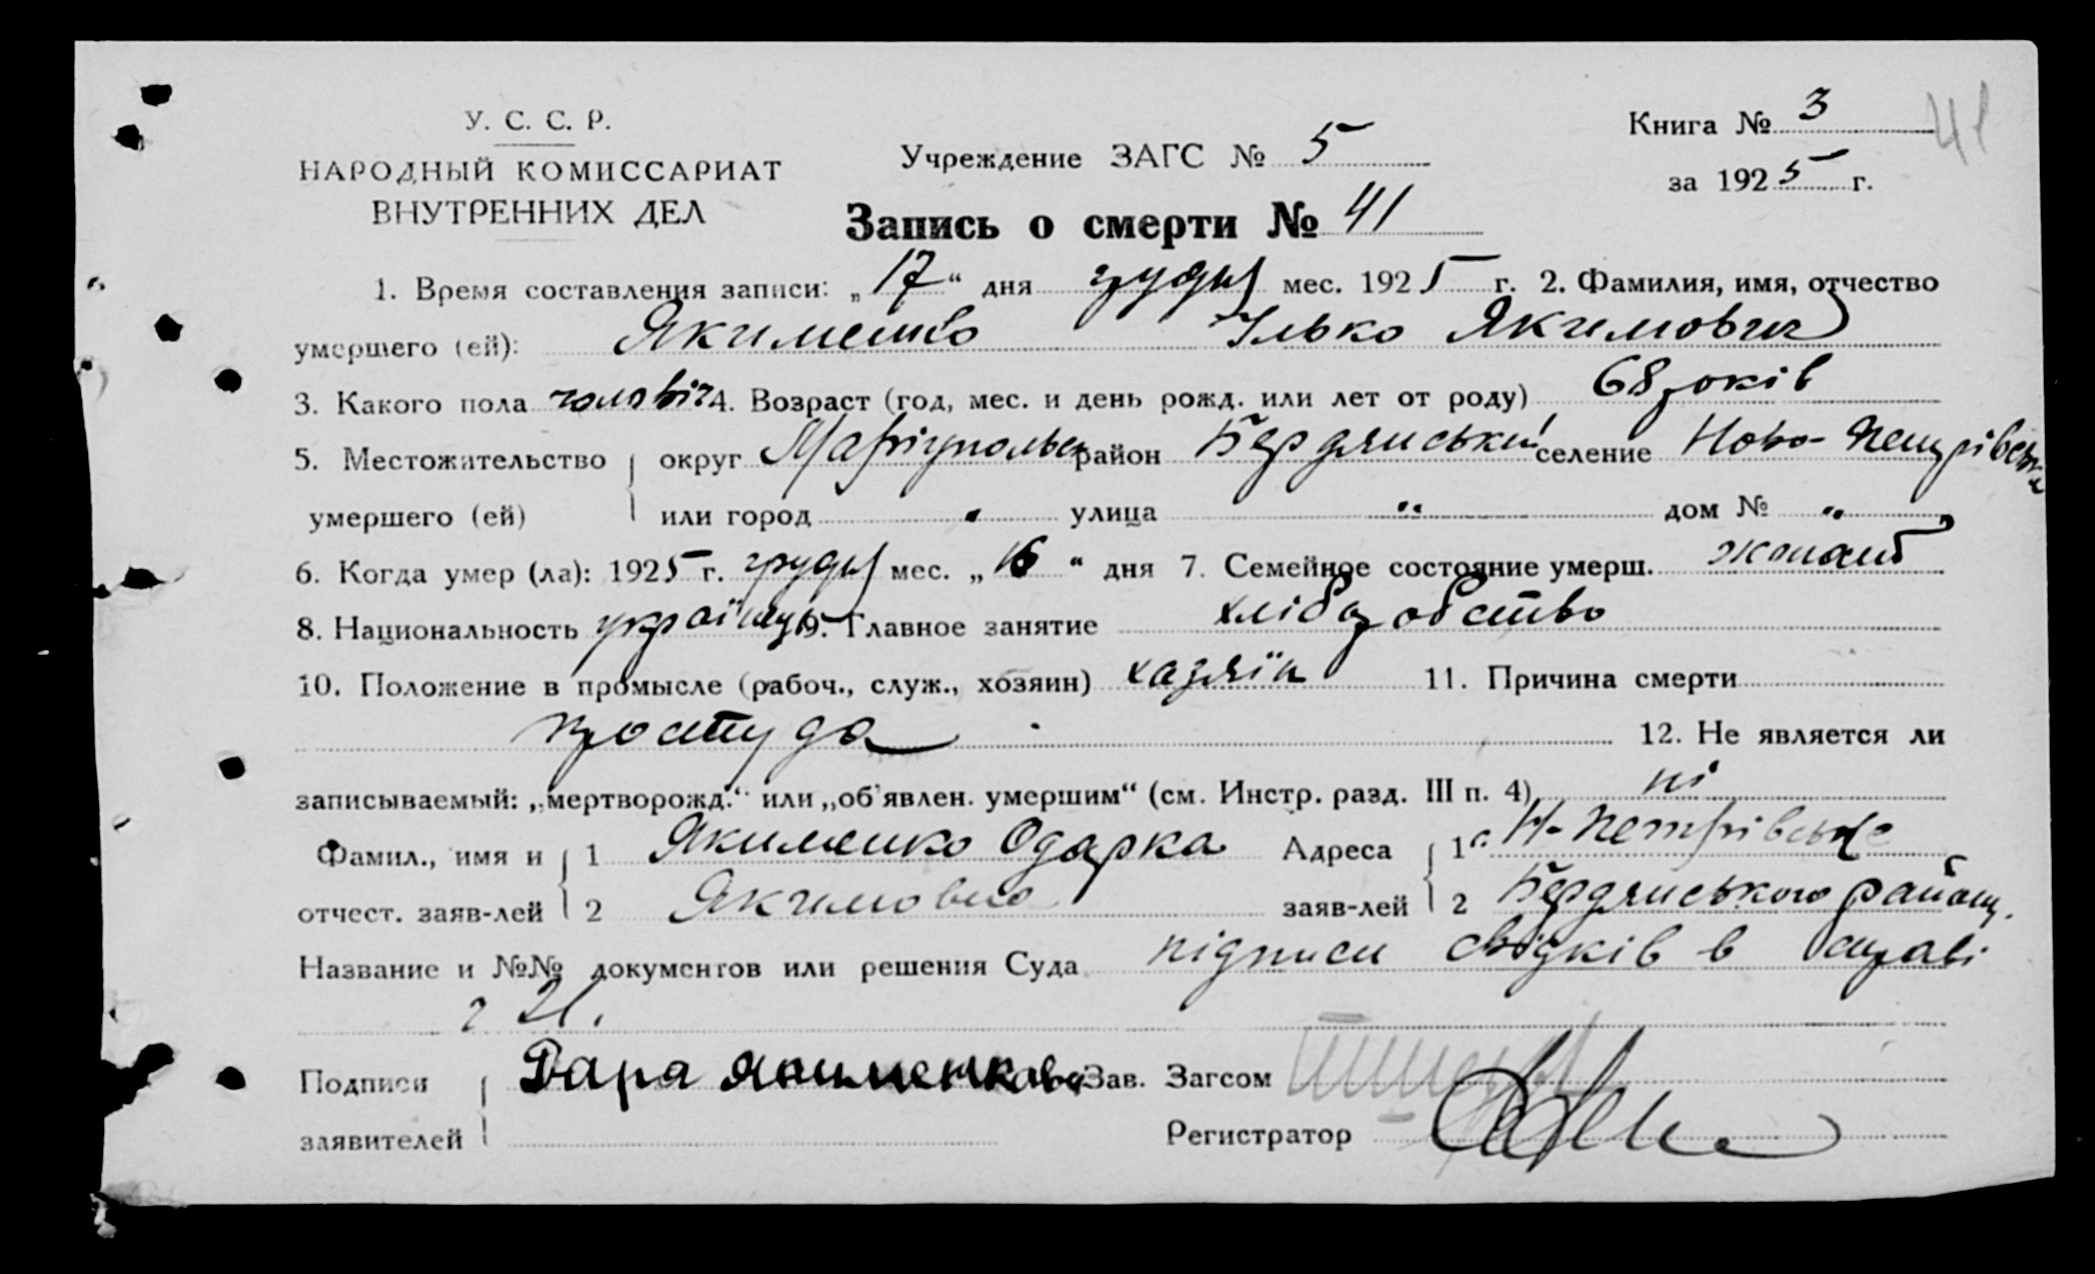 У. С. С. Р.
НАРОДНЫЙ КОМИССАРИАТ
ВНУТРЕННИХ ДЕЛ
Учреждение ЗАГС № 5
Книга № 3
41
за 1925 г.
Запись о смерти № 41
1. Время составления записи: „17“ дня грудня мес. 1925 г. 2. Фамилия, имя, отчество
умершего (ей): Якименко Ілько Якимович
3. Какого пола чоловіч 4. Возраст (год, мес. и день рожд. или лет от роду) 68 років
5. Местожительство округ Маріупольск район Бердянський селение Ново-Петрівське
умершего (ей) или город " улица " дом № "
6. Когда умер (ла): 1925 г. грудня мес. „16“ дня 7. Семейное состояние умерш. жонат
8. Национальность українець 9. Главное занятие хліборобство
10. Положение в промысле (рабоч., служ., хозяин) хазяїн 11. Причина смерти
простуда 12. Не является ли
записываемый: „мертворожд.“ или „об'явлен. умершим“ (см. Инстр. разд. III п. 4) ні
Фамил., имя и 1 Якименко Одарка Адреса 1 с. Н-Петрівське
отчест. заяв-лей 2 Якимовна заяв-лей 2 Бердянського району.
Название и №№ документов или решения Суда підписи свідків в справі
г 21.
Подписи Дара Якименкова Зав. Загсом
заявителей Регистратор